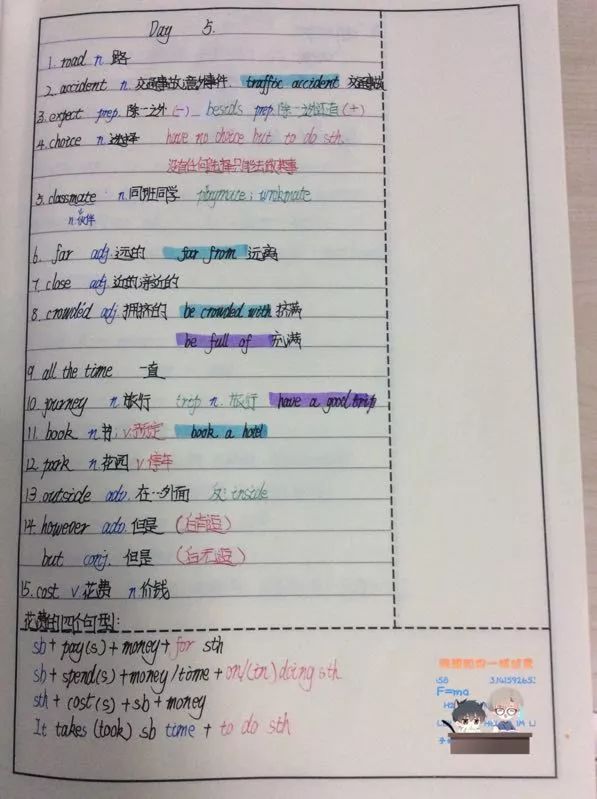 Day 5.
1. road n 路
2. accident n. 交通事故,意外事件. traffic accident 交通事故
3. expect prep. 除…之外 (-) besids prep. 除…之外还有 (+)
4. choice n. 选择 have no choice but to do sth.
没有任何选择只能去做某事
5. classmate n. 同班同学 playmate; wrokmate
n. 伙伴
6. far adj. 远的 far from 远离
7. close adj. 近的,亲近的
8. crowded adj 拥挤的 be crowded with 挤满
be full of 充满
9 all the time 一直
10. journey n 旅行 trip n. 旅行 have a good trip
11. book n 书; v. 预定 book a hotel
12. park n. 花园 v 停车
13. outside adv. 在…外面 反: inside
14. however adv. 但是 (有逗)
but conj. 但是 (无逗)
15. cost v 花费 n 价钱
花费的四个句型:
sb + pay(s) + money + for sth
sb + spend(s) + money / time + on/(in) doing sth
sth + cost(s) + sb + money
It takes (took) sb time + to do sth
3.14159265
F=ma